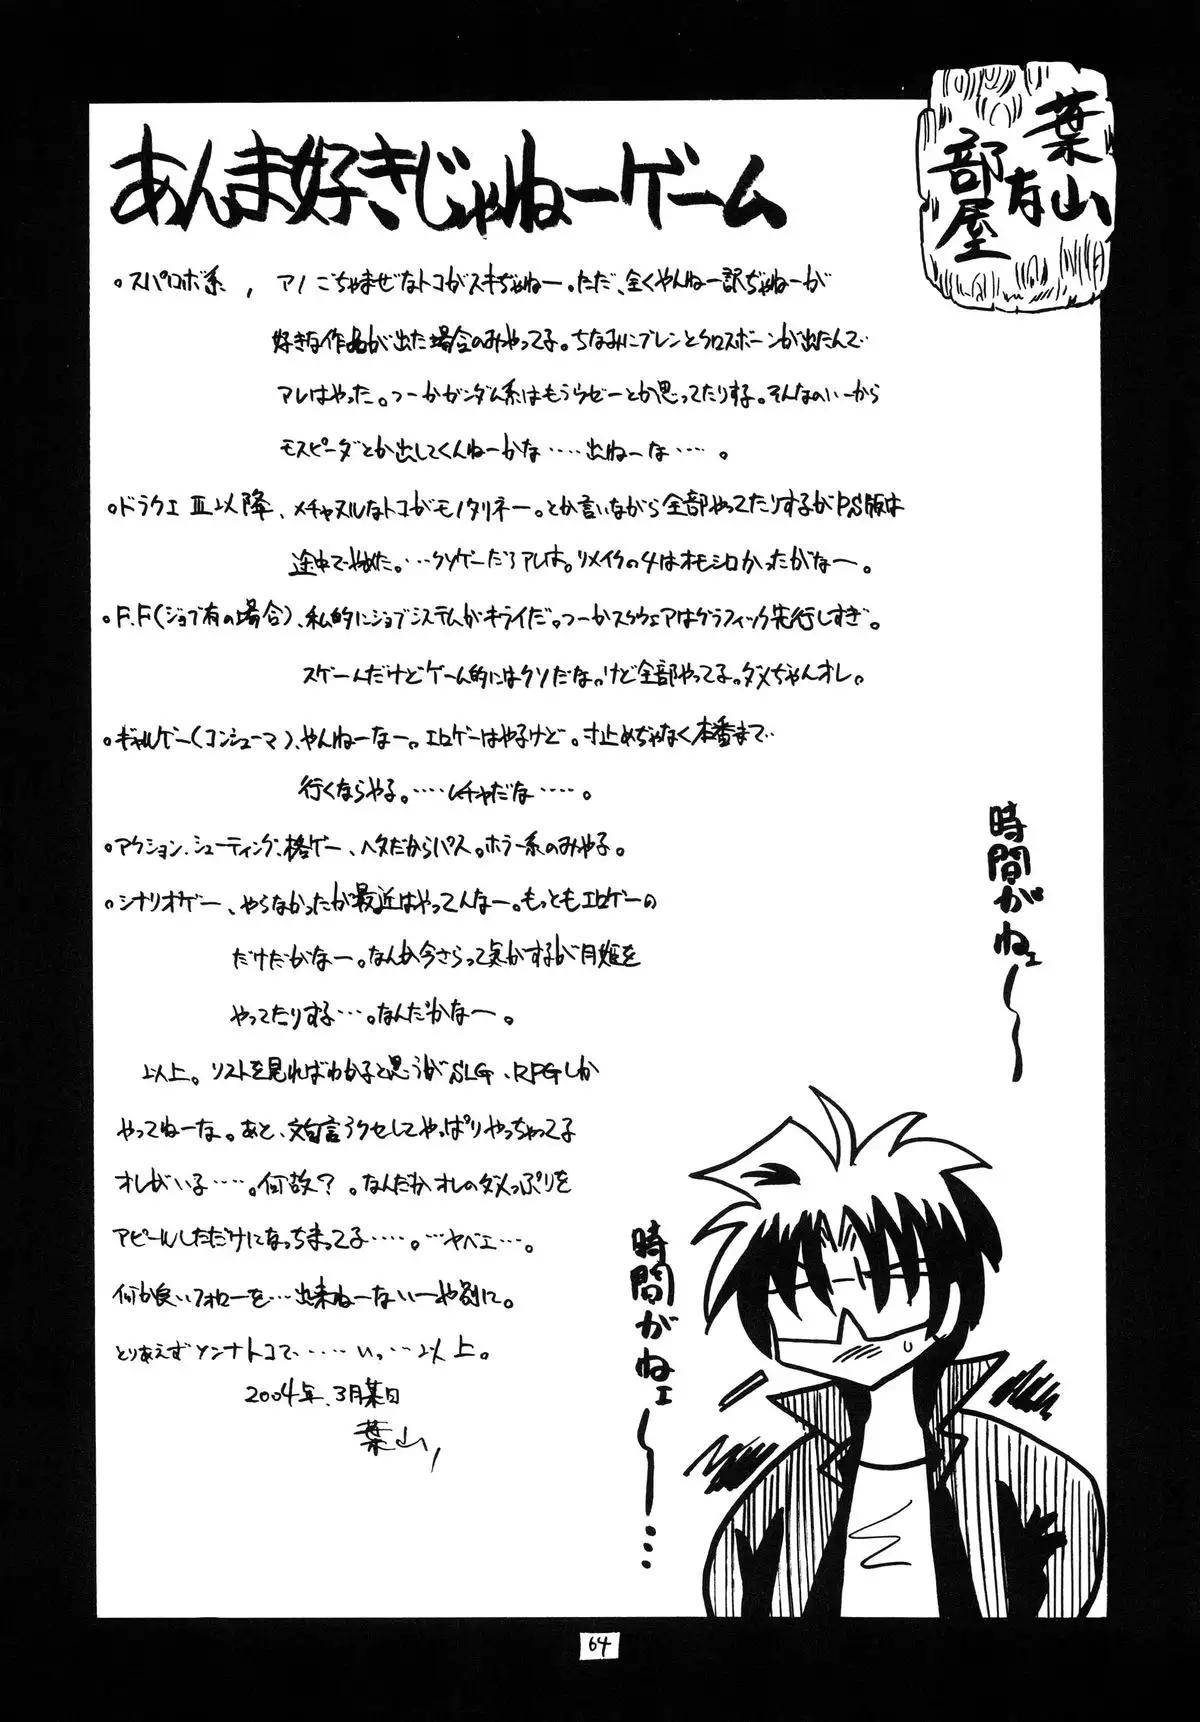 葉山
有
部屋
あんま好きじゃねーゲーム
○スパロボ系、アノごちゃまぜなトコがスキぢゃねー。ただ、全くやんねー訳ぢゃねーが
好きな作品が出た場合のみやってる。ちなみにブレンとクロスボーンが出たんで
アレはやった。つーかガンダム系はもうウゼーとか思ってたりする。そんなのいーから
モスピーダとか出してくんねーかな‥‥出ねーな‥‥。
○ドラクエⅢ以降、メチャヌルなトコがモノタリネー。とか言いながら全部やってたりするがPS版は
途中でやめた。‥‥クソゲーだろアレは。リメイクの4はオモシロかったがなー。
○F.F(ジョブ有の場合)、私的にジョブシステムがキライだ。つーかスクウェアはグラフィック先行しすぎ。
スゲーんだけどゲーム的にはクソだな。けど全部やってる。ダメぢゃんオレ。
○ギャルゲー(コンシューマ)、やんねーなー。エロゲーはやるけど。寸止めぢゃなく本番まで
行くならやる。‥‥ムチャだな‥‥。
○アクション、シューティング、格ゲー、ヘタだからパス。ホラー系のみやる。
○シナリオゲー、やらなかったが最近はやってんなー。もっともエロゲーの
だけだがなー。なんか今さらって気がするが月姫を
やってたりする‥‥。なんだかなー。
以上。リストを見ればわかると思うがSLG、RPGしか
やってねーな。あと、文句言うクセしてやっぱりやっちゃってる
オレがいる‥‥。何故?。なんだかオレのダメっぷりを
アピールしただけになっちまってる‥‥。‥‥ヤベェ‥‥。
何か良いフォローを‥‥出来ねーないーや別に。
とりあえずソンナトコで‥‥‥いっ‥‥以上。
2004年、3月某日
葉山
時間がねェ〜〜
時間がねェ〜〜…
64